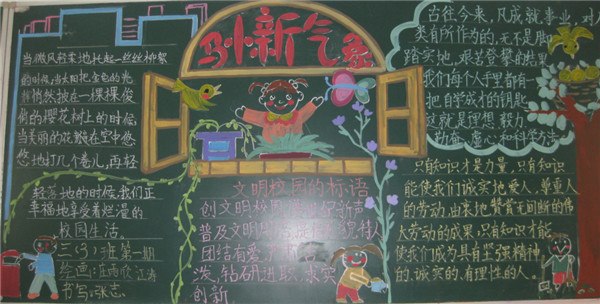 孙新气象
当微风轻柔地托起一丝丝柳絮
的时候,当太阳把金色的光
辉悄然披在一棵棵俊
俏的樱花树上的时候,
当美丽的花瓣在空中悠
悠地打几个卷儿,再轻
轻落地的时候,我们正
幸福地享受着烂漫的
校园生活
三(3)班 第一期
绘画:
书写:张志
文明校园的标语
创文明校园
普及文明
团结有爱
泼,钻研进取,求实
创新
古往今来,凡成就事业,对人
类有所作为的,无不是脚
踏实地,艰苦登攀的结果
我们每个人手里都有一
把自学成才的钥匙
这就是理想、毅力
勤奋、虚心和科学方法
只有知识才是力量,只有知识
能使我们诚实地爱人,尊重人
的劳动,由衷地赞赏无间断的伟
大劳动的成果,只有知识才能
使我们成为具有坚强精神
的、诚实的、有理性的人。